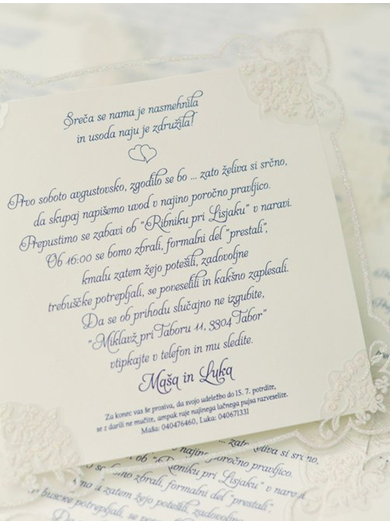 Sreča se nama je nasmehnila
in usoda naju je združila!
Prvo soboto avgustovsko, zgodilo se bo ... zato želiva si srčno,
da skupaj napišemo uvod v najino poročno pravljico.
Prepustimo se zabavi ob "Ribniku pri Lisjaku" v naravi.
Ob 16:00 se bomo zbrali, formalni del "prestali",
kmalu zatem žejo potešili, zadovoljne
trebuščke potrepljali, se poveselili in kakšno zaplesali.
Da se ob prihodu slučajno ne izgubite,
"Miklavž pri Taboru 11, 3304 Tabor"
vtipkajte v telefon in mu sledite.
Maša in Luka
Za konec vas še prosiva, da svojo udeležbo do 15. 7. potrdite,
se z darili ne mučite, ampak raje najinega lačnega pujsa razveselite.
Maša: 040476460, Luka: 040671331
ob "Ribniku pri Lisjaku" v naravi
zbrali, formalni del "prestali",
zatem žejo potešili, zadovoljne
potrepljali, se poveselili in kakšno